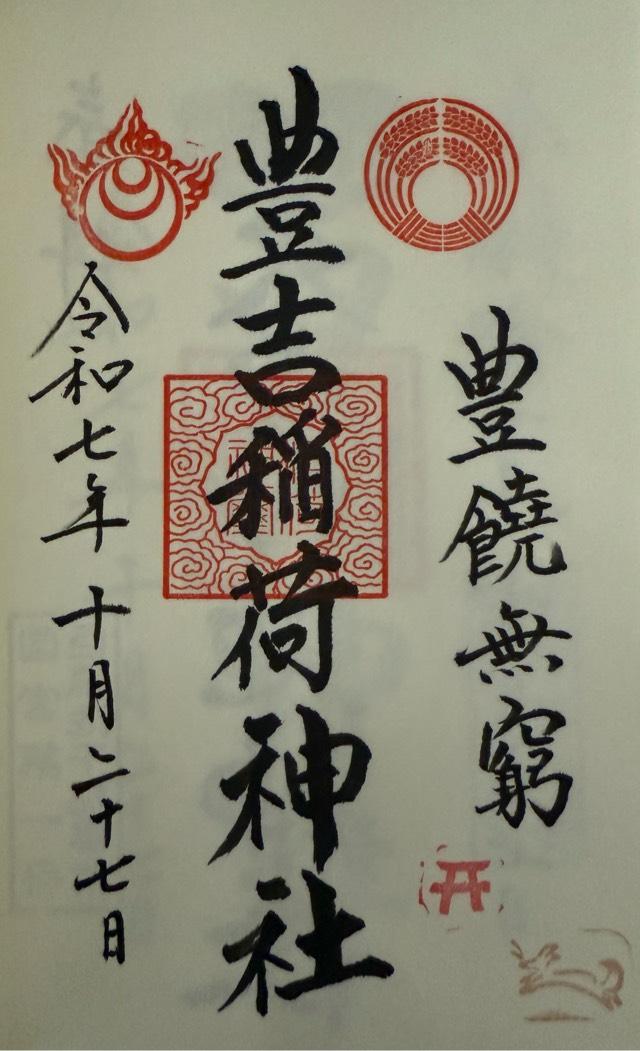 豊饒無窮
豊吉稲荷神社
令和七年十月二十七日